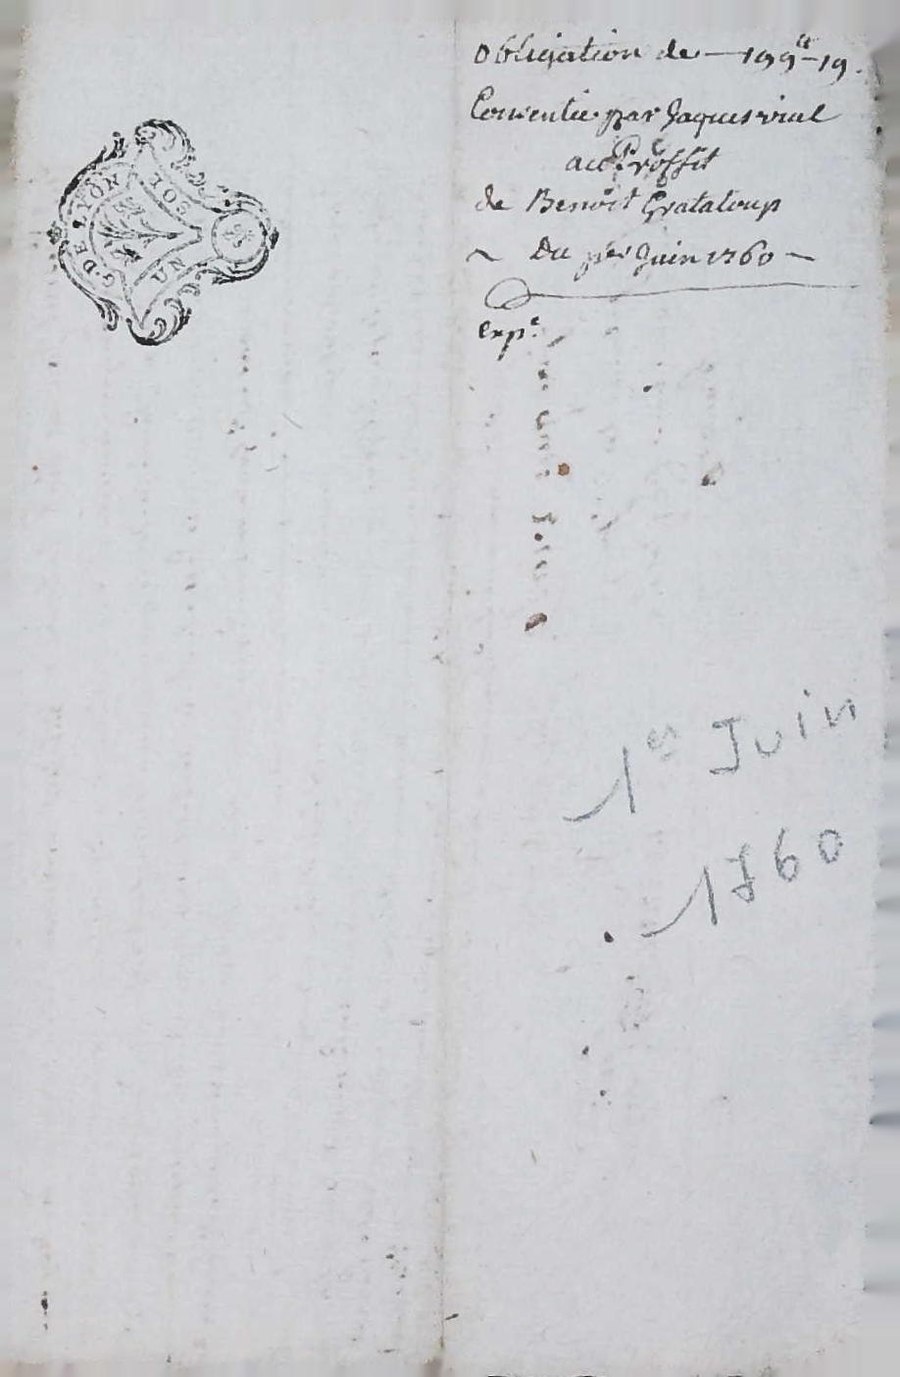 G. DE LYON
UN SOL
Obligation de — 199ᵗᵗ-19.
Consentie par Jaques vial
au Proffit
de Benoit Grataloup
~ Du per Juin 1760 ~
Expᵉ.
1er Juin
1760